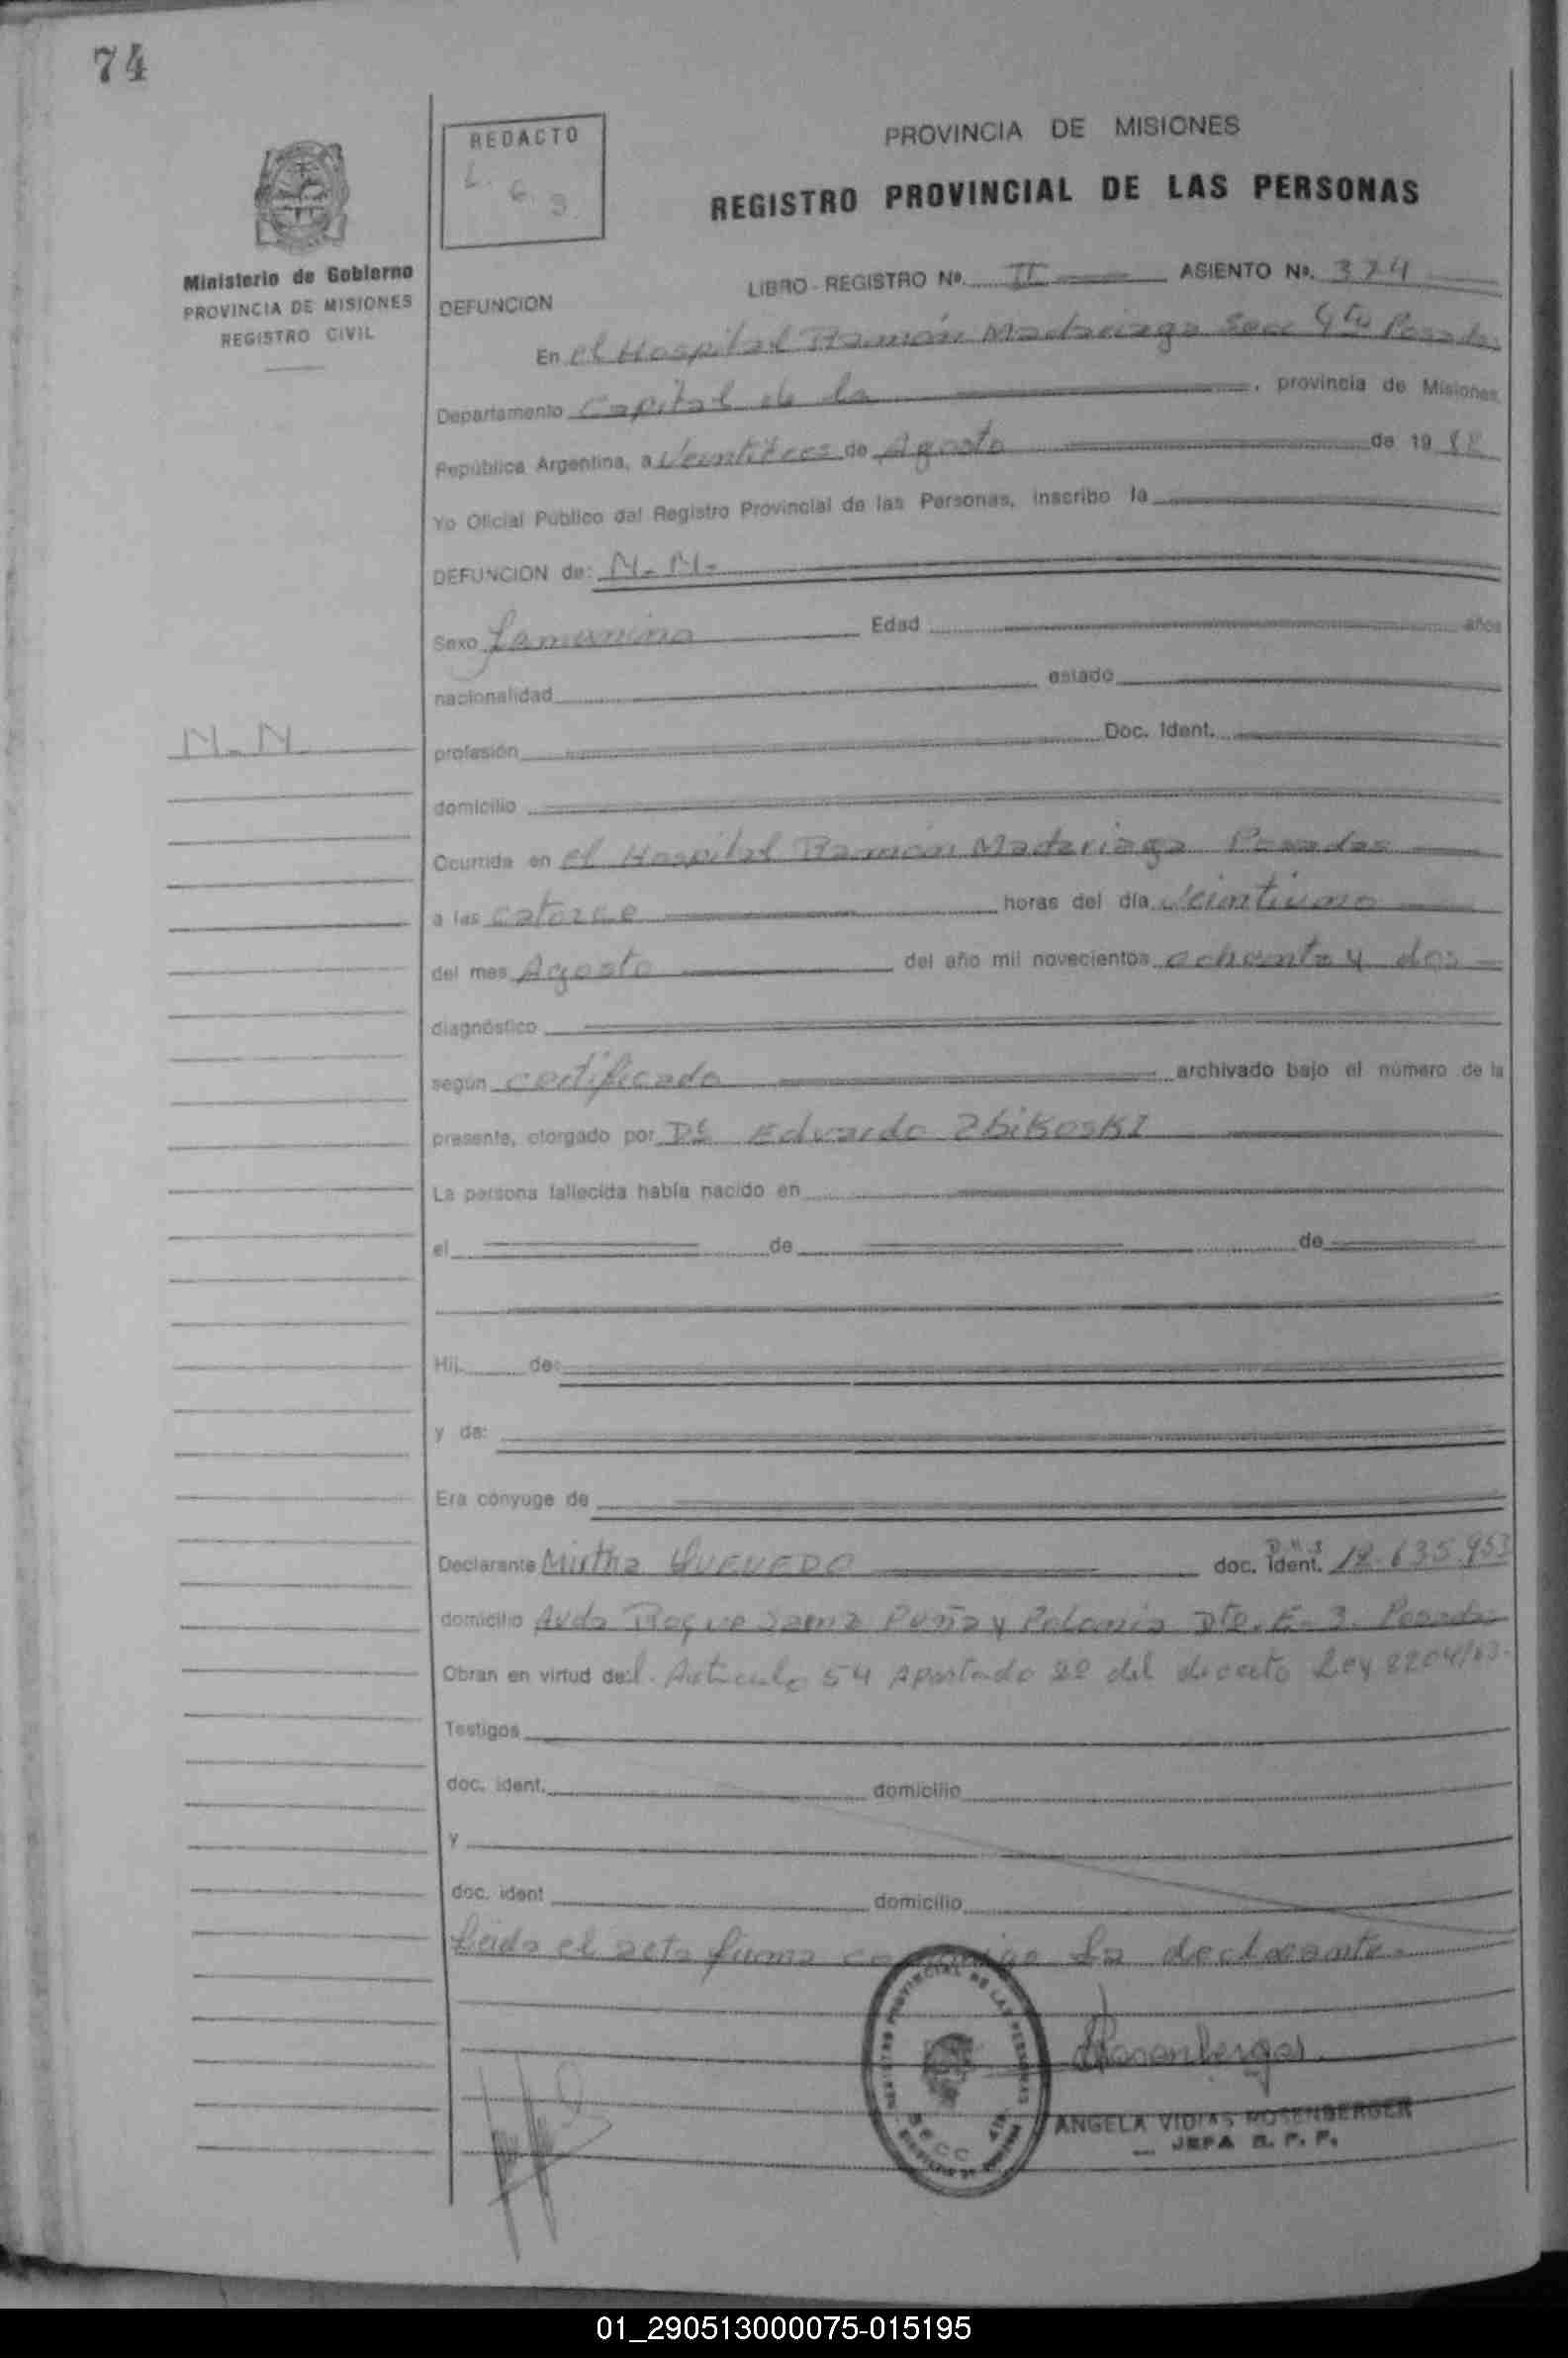 74
REDACTO
L. G. 3.
PROVINCIA DE MISIONES
REGISTRO PROVINCIAL DE LAS PERSONAS
Ministerio de Gobierno
PROVINCIA DE MISIONES
REGISTRO CIVIL
LIBRO - REGISTRO Nº. II ASIENTO Nº. 374
DEFUNCION
En el Hospital Ramón Madariaga Secc 4ta Posadas
Departamento Capital de la , provincia de Misiones,
República Argentina, a Veintitres de Agosto de 19 82
Yo Oficial Público del Registro Provincial de las Personas, inscribo la
DEFUNCION de: N.N.
Sexo femenino Edad años
nacionalidad estado
N.N.
profesión Doc. Ident.
domicilio
Ocurrida en el Hospital Ramón Madariaga Posadas
a las catorce horas del día veintiuno
del mes Agosto del año mil novecientos ochenta y dos
diagnóstico
según certificado archivado bajo el número de la
presente, otorgado por Dr Eduardo ZbiKosKI
La persona fallecida había nacido en
el de de
Hij de:
y de:
Era cónyuge de
Declarante Mirtha QUEVEDO doc. ident. 635.953
domicilio Avda Roque Saenz Peña y Polonia Dto. E-3. Posadas
Obran en virtud del. Articulo 54 Apartado 2º del decreto Ley 8204/63.
Testigos
doc. ident. domicilio
y
doc. ident domicilio
Leida el acta firma conmigo la declarante.
REGISTRO PROVINCIAL DE LAS PERSONAS
SECC 4ta.
Rosenberger
ANGELA VIDIAS ROSENBERGER
JEFA R. P. P.
01_290513000075-015195